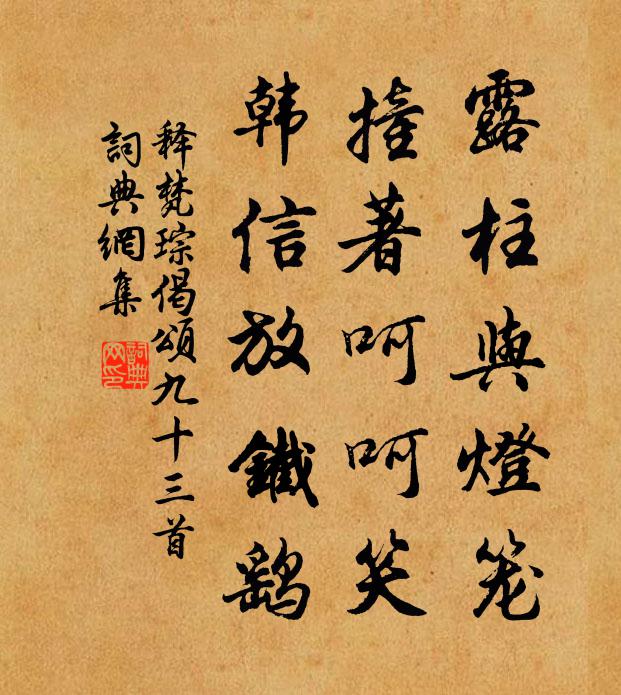 露柱與燈笼
撞著呵呵笑
韩信放鐵鷂
释梵琮偈頌九十三首
詞典網集
詞典网印